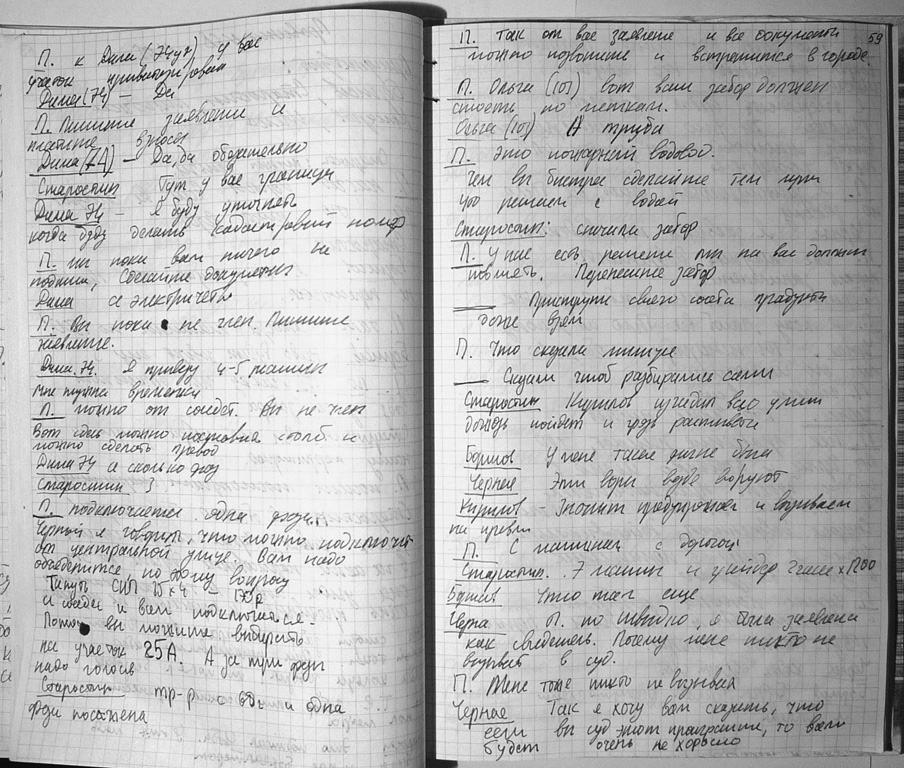 П. к Дима (74уч) у вас
участок приватизирован
Дима (74) — Да
П. Пишите заявление и
платите взносы
Дима (74) — Да, да обязательно
Старостин Тут у вас границы
Дима 74 — я буду уточнять
когда буду делать кадастровый номер
П. мы пока вам ничего не
подпишем, сделайте документы
Дима а электричество
П. Вы пока не член. Пишите
заявление.
Дима 74. я приведу 4-5 машин
мне нужна времянка
П. можно от соседей. Вы не член
Вот здесь можно поставить столб и
можно сделать провод
Дима 74 а сколько фаз
Старостин 3
П. подключается одна фаза.
Черный я говорил, что можно подключит
от центральной улице. Вам надо
объедениться по этому вопросу
Тянуть СИП 15×4 — 170р
и сведен и вам подключаться.
Потом вы можите выбирать
на участок 25А. А за три фазы
надо голосов
Старостин тр-р по воды и одна
фаза посажена
59
П. Так от вас заявление и все документы
можно позвонить и встретится в городе.
П. Ольга (101) вот ваш забор должен
стоять по меткам.
Ольга (101) А труба
П. Это пожарный водовод.
Чем вы быстрее сделайте тем лучше
что решаем с водой
Старостин: сначала забор
П. У нас есть решение мы на вас должны
повлиять. Перенесите забор
— При своего соста продукты
тоже врем
П. Что сказали
— Сказали чтоб разбирались сами
Старостин Кирилов изъездил всю улицу
дождь пойдет и грязь растянет
Борисов У меня также дачне была
Черная Эти воры везде воруют
Кирилов — Значит предупреждаем и вызываем
на правл
П. С начинаем с дорогой
Старостин. 7 машин и грейдер 2 часа × 1700
Борисов Что там еще
Черна П. по Швидко, я была заявлена
как свидетель. Почему меня никто не
вызывал в суд.
П. Меня тоже никто не вызывал
Черная Так я хочу вам сказать, что
если вы суд этот проиграете, то вам
будет очень не хорошо